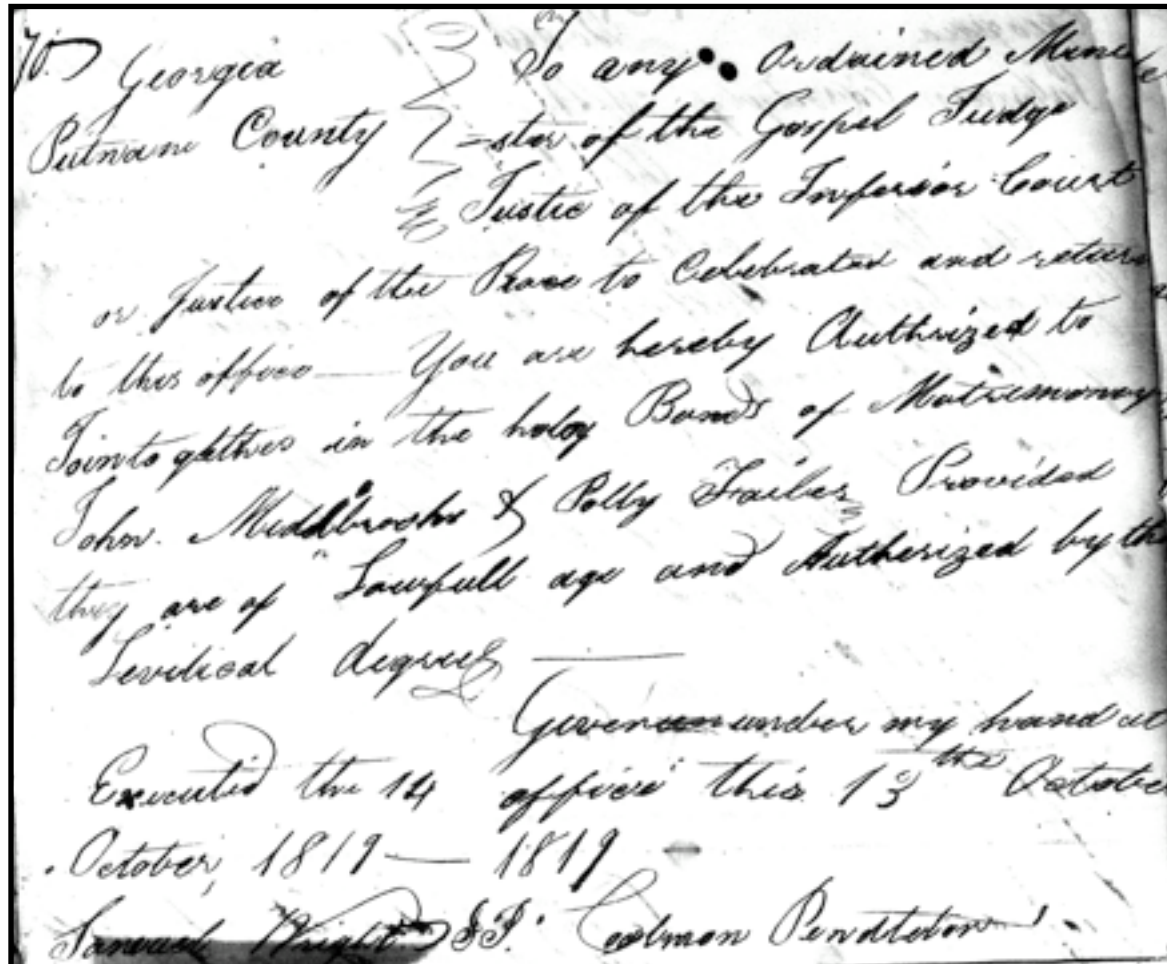 70
Georgia } To any Ordained Mini
Putnam County } =ster of the Gospel Judge
Justic of the Inferior Court
or Justice of the Peace to Celebrated and return
to this office — You are hereby Authrized to
Jointogather in the holoy Bonds of Matrimonoy
John. Middlbrooks & Polly Provided
they are of Lawfull age and Autherized by the
Levitical degrees —
Given under my hand at
Executed the 14 office this 13th October
October, 1819 — 1819
Samuel Wright J.P. Colmon Pendleton